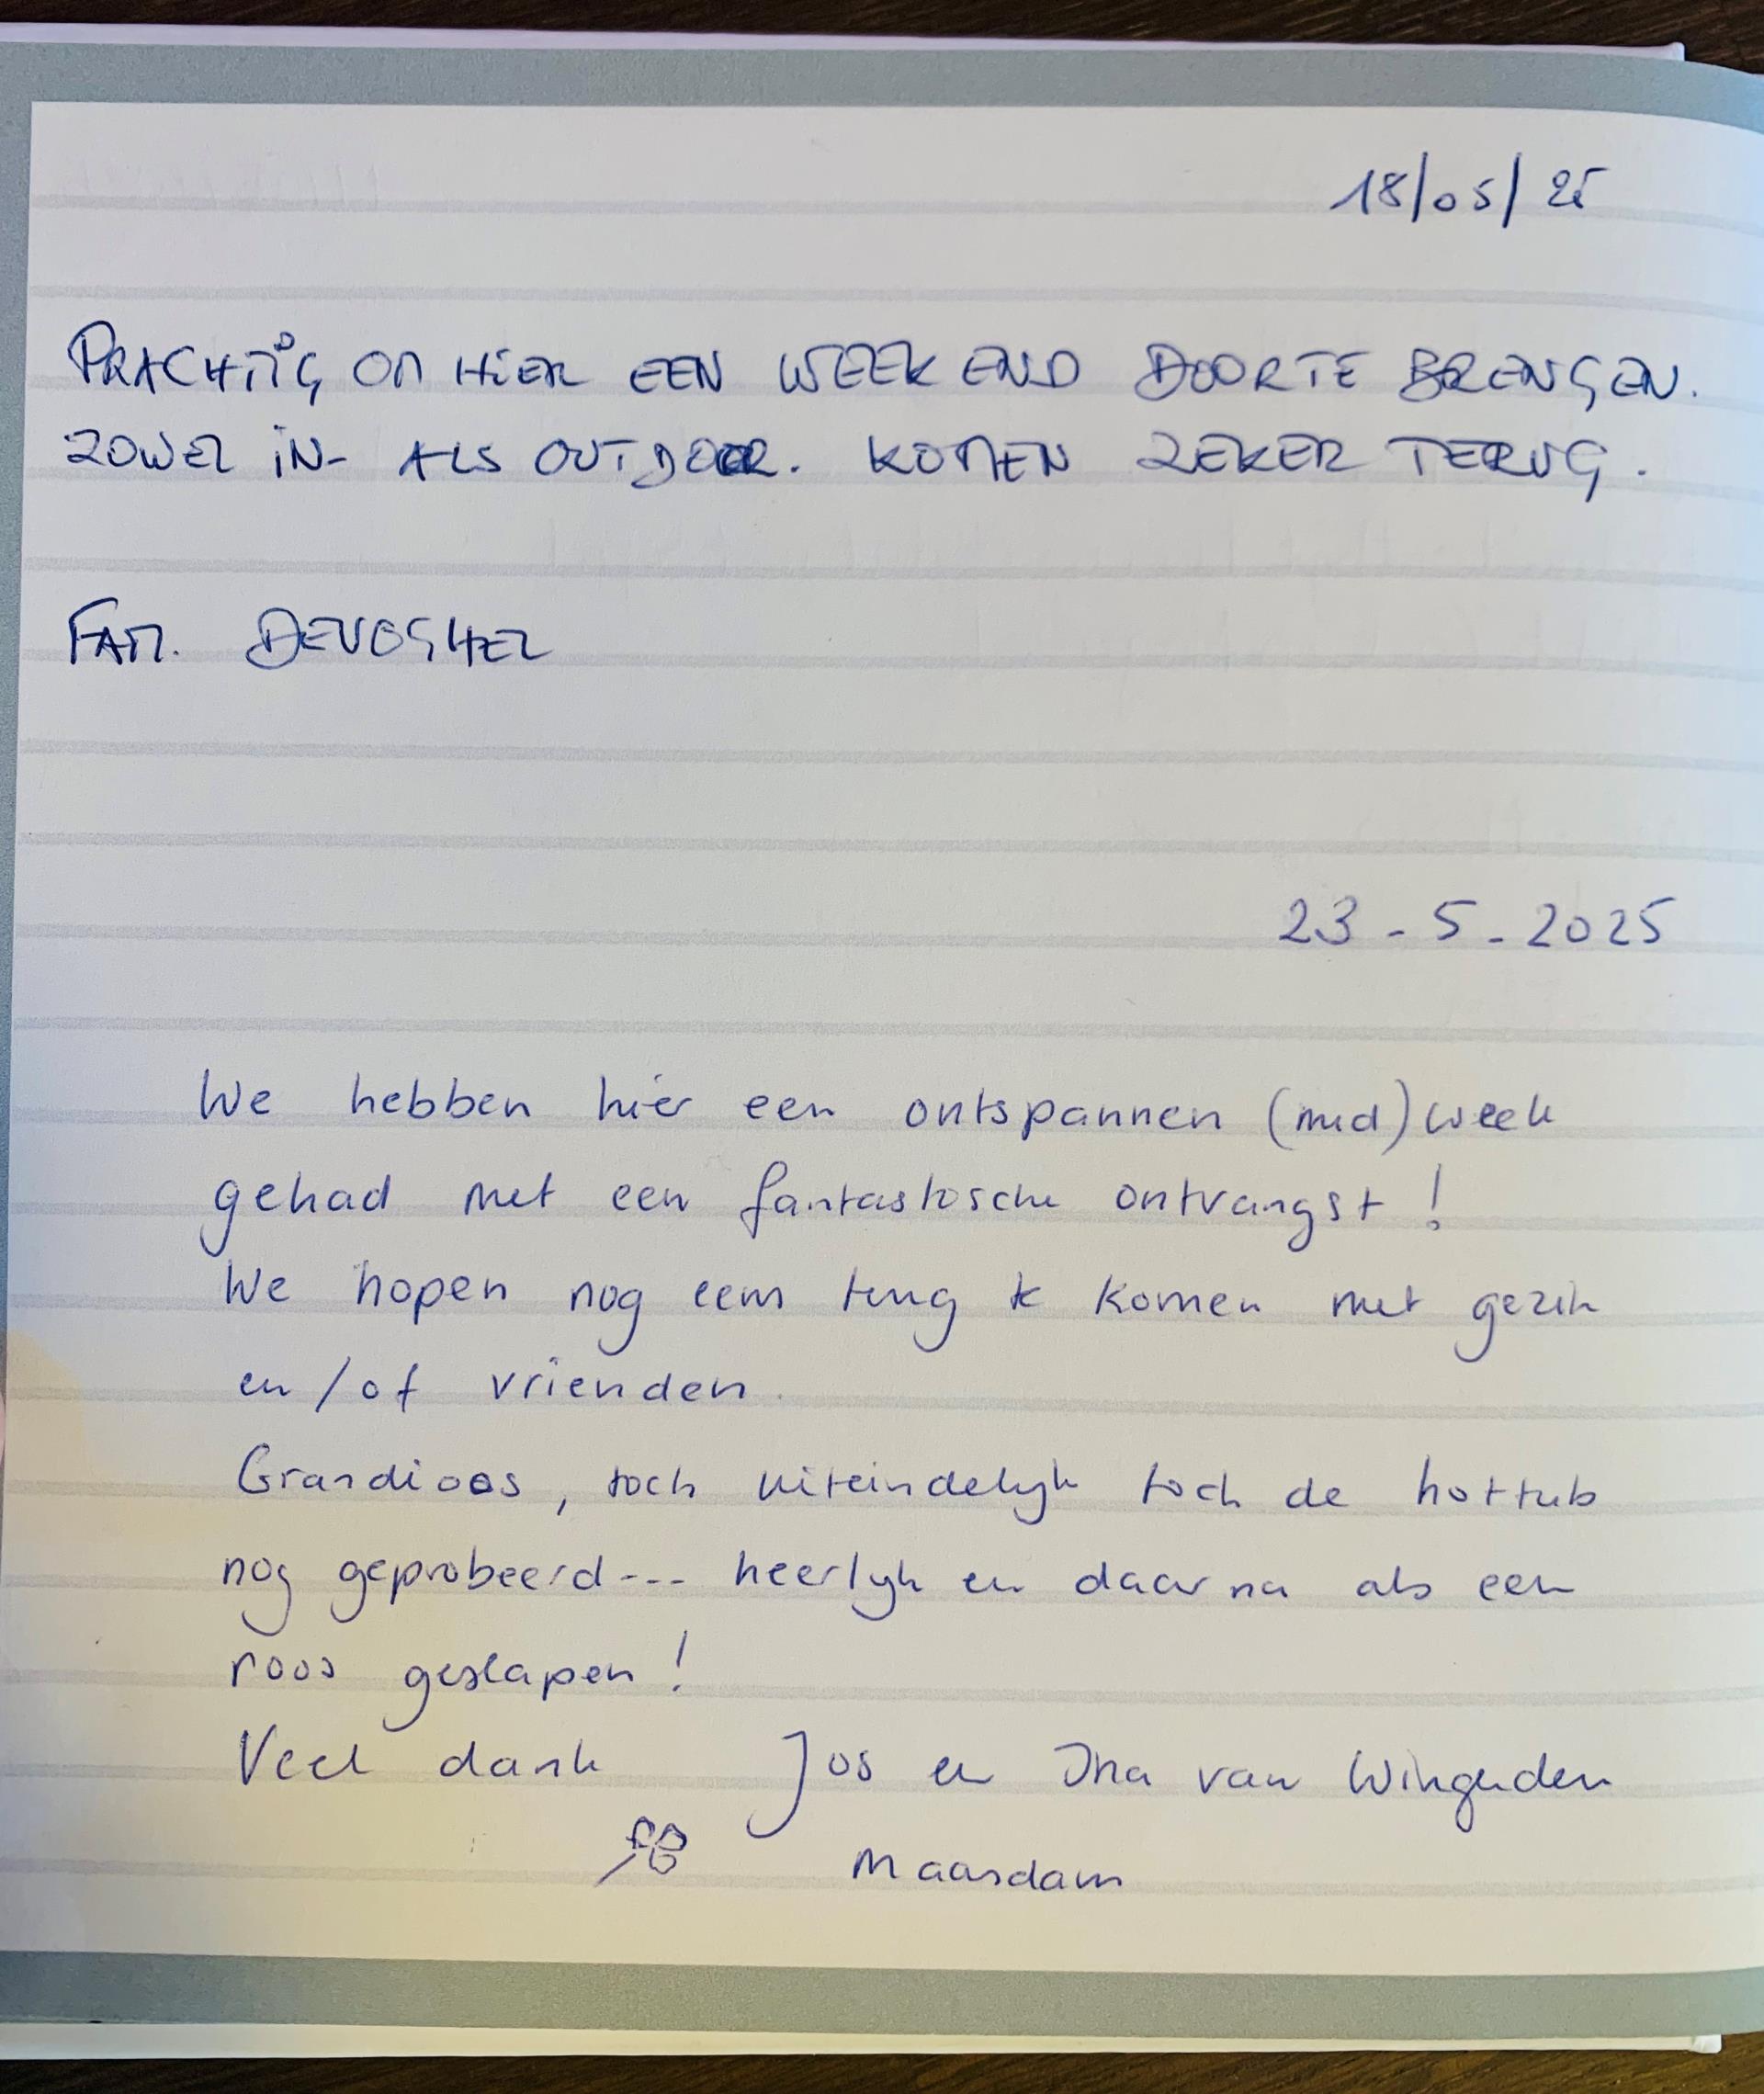 18/05/25
PRACHTIG OM HIER EEN WEEKEND DOOR TE BRENGEN.
ZOWEL IN- ALS OUTDOOR. KOMEN ZEKER TERUG.
FAM.
23-5-2025
We hebben hier een ontspannen (mid)week
gehad met een fantastische ontvangst!
We hopen nog eens terug te komen met gezin
en/of vrienden.
Grandioos, toch uiteindelijk toch de hottub
nog geprobeerd--- heerlijk en daarna als een
roos geslapen!
Veel dank Jos en Ina van Wingerden
Maasdam